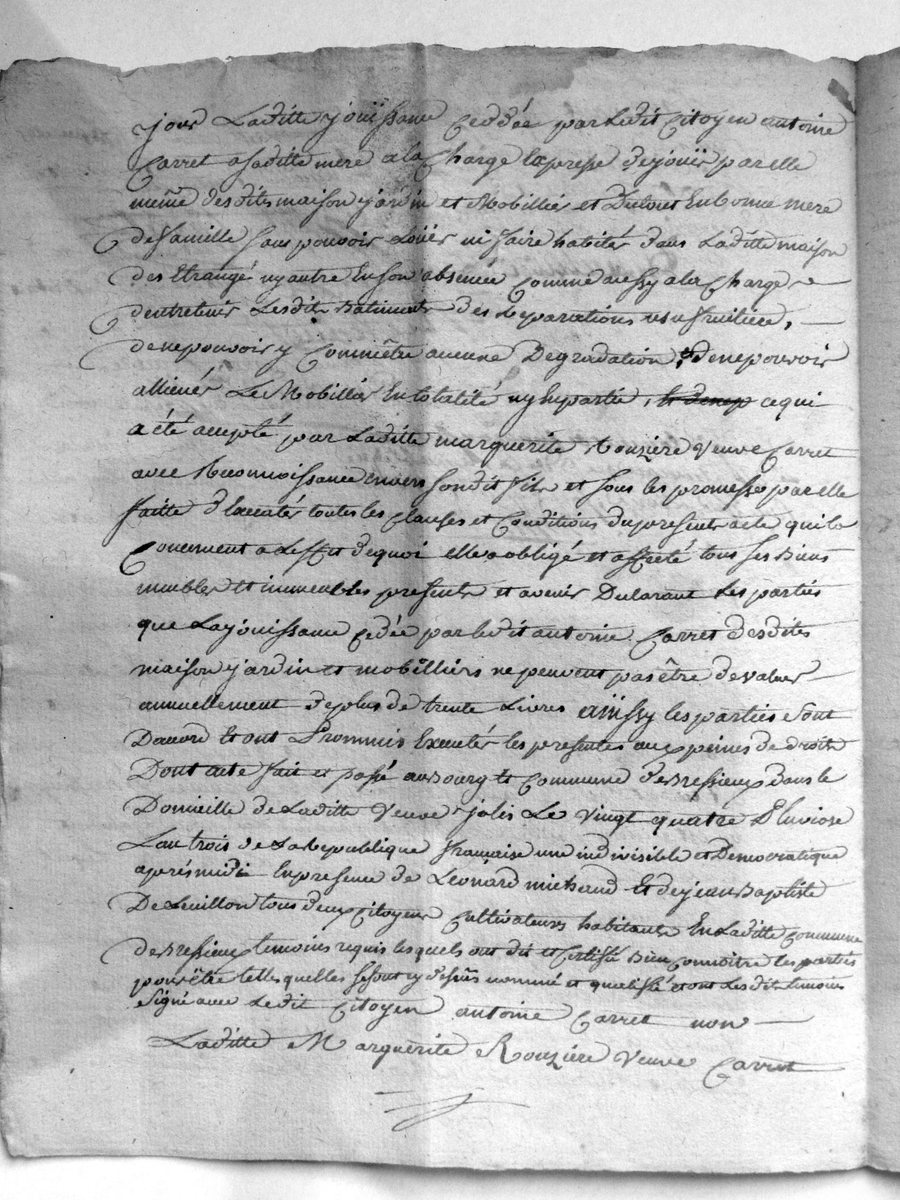 jour Laditte jouissance Ceddée par Ledit Citoyen antoine
Carret a saditte mere a la Charge Expresse de jouir par elle
même desdites maison jardin et Mobillier et Dutout En bonne mere
de famille sans pouvoir Loüer ni faire habiter dans Laditte maison
des Etrangé ny autre En son absence Comme aussy a la Charge
d'entretenir Lesdits Batiments des Reparations usufruitiere,
de ne pouvoir y Commêttre aucune Degradation, de ne pouvoir
alliener Le Mobillier En totalité ny En partie, ce qui
a été accepté par Laditte marguerite Rouzière Veuve Carret
avec Reconnoissance envers sondit fils et sous les promesses par elle
faitte d'Executer toutes les Clauses et Conditions du present acte qui la
Concernent a Leffet de quoi elle a obligé et affecté tous ses Biens
meubles et immeubles presents et avenir Declarant Les parties
que La jouissance Cedée par ledit antoine Carret desdites
maison jardin et mobilliers ne peuvent pas être de valeur
annuellement de plus de trente Livres ainssy les parties sont
Daccord Et ont Prommis Executer les presentes aux peines de droit
Dont acte fait et passé au Bourg Et Commune de Bressieux dans le
Domicille de Laditte Veuve Jolis Le Vingt quatre Pluviose
L'an trois de La Republique francaise une indivisible et Democratique
après midi En presence de Leonard michaud Et de jean Baptiste
tous deux Citoyens Cultivateurs habitants En Laditte Commune
de Bressieux temoins requis lesquels ont dit et Certifié Bien Connoitre les parties
pour être telles quelles se sont cy dessus nommé et qualifié et ont Lesdits temoins
signé avec Ledit Citoyen antoine Carret non
Laditte Marguerite Rouzière Veuve Carret